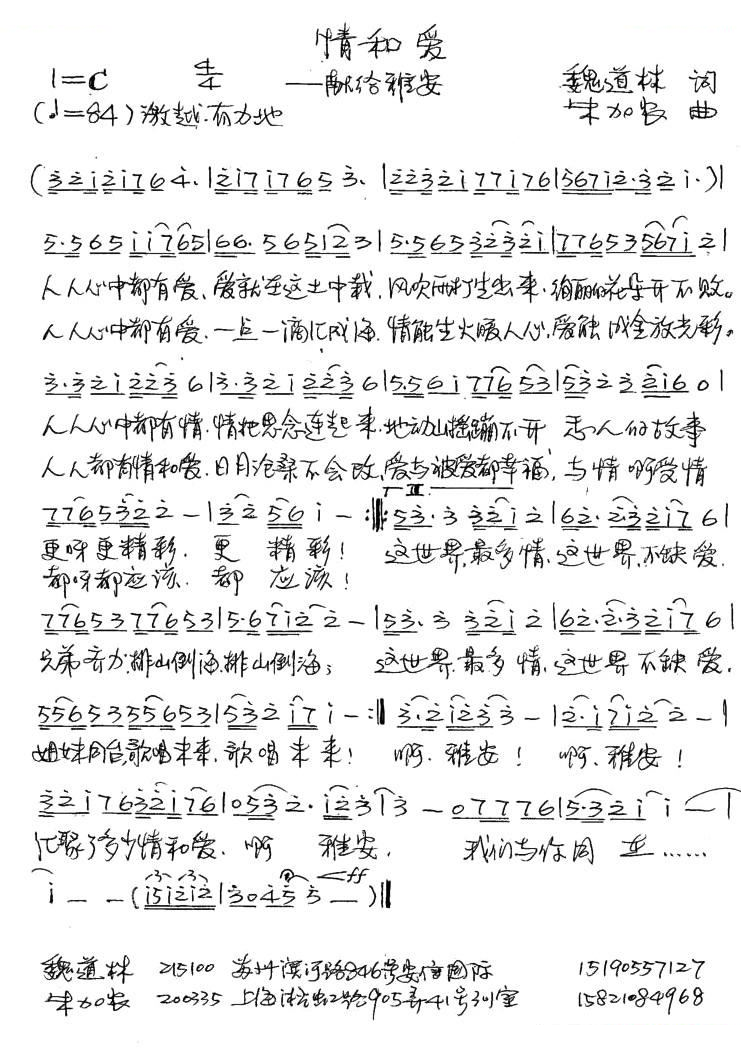 情和爱
1=C 4/4 ——献给雅安 魏道林 词
(♩=84)激越.有力地 朱加农 曲
(3̇2̇1̇2̇1̇764̇.|2̇1̇71̇7653̇.|2̇2̇3̇2̇1̇771̇76|5671̇2̇.3̇2̇1̇.)|
5.5651̇1̇765|66.56512̇3|5.5653̇2̇3̇2̇1̇|776535671̇2̇|
人人心中都有爱、爱就在这土中栽,风吹雨打生出来.绚丽的花朵开不败。
人人心中都有爱.一点一滴汇成海.情能生火暖人心,爱能 成金放光彩。
3̇.3̇2̇1̇2̇2̇3̇6|3̇.3̇2̇1̇2̇2̇3̇6|5.561̇77653̇|5̇3̇2̇3̇2̇1̇60|
人人心中都有情.情把思念连起来.地动山摇蹦不开 恋人的故事
人人都有情和爱.日月沧桑不会改,爱与被爱都幸福,与情啊爱情
77653̇2̇2̇-|3̇2̇561̇-:‖:5̇3̇.3̇3̇2̇1̇2̇|62̇.2̇3̇2̇1̇76|
更呀更精彩.更 精彩! 这世界,最多情.这世界,不缺爱.
都呀都应该.都 应该!
7765377653|5.671̇2̇2̇-|5̇3̇.3̇3̇2̇1̇2̇|62̇.2̇.3̇2̇1̇76|
兄弟齐力,排山倒海,排山倒海; 这世界,最多情,这世界不缺爱.
5565355653|5̇3̇2̇1̇71̇-:‖3̇.2̇1̇2̇3̇3̇-|2̇.1̇71̇2̇2̇-|
姐妹同台歌唱未来,歌唱未来! 啊.雅安! 啊.雅安!
3̇2̇1̇763̇2̇1̇76|05̇3̇2̇.1̇2̇3̇|3̇-07776|5.3̇2̇1̇1̇-|
汇聚了多少情和爱.啊 雅安. 我们与你同 在……
1̇--(1̇51̇2̇1̇2̇|3̇04̇5̇5̇-)‖ ff
魏道林 215100 苏州滨河路846号安信国际 15190557127
朱加农 200335 上海 905弄41号 室 15821084968